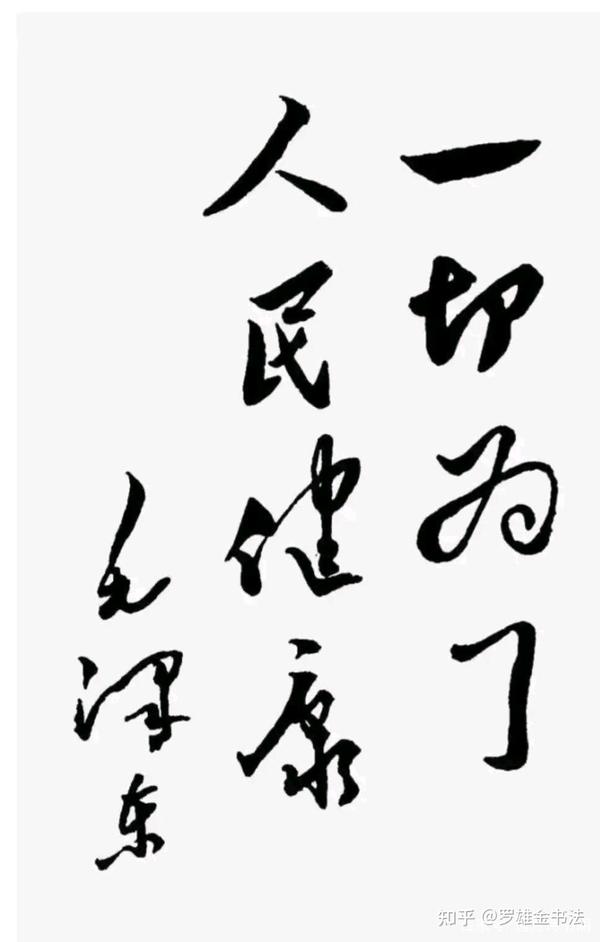 一切为了
人民健康
毛泽东
知乎 @罗雄金书法